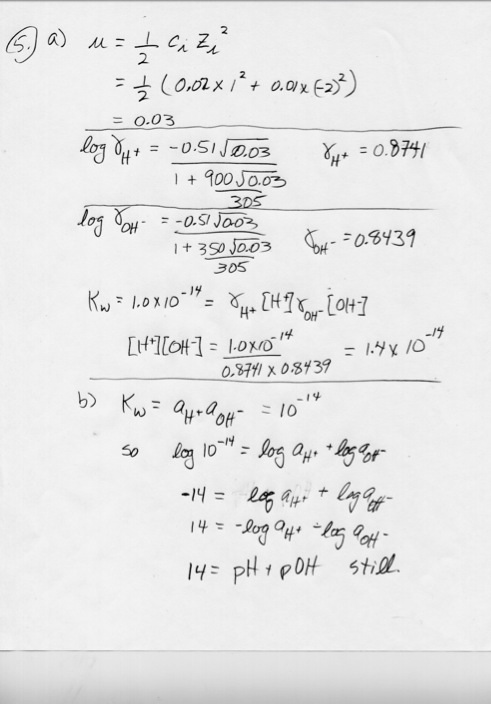 5. a) μ = 1/2 Ci Zi²
= 1/2 (0.02 x 1² + 0.01 x (-2)²)
= 0.03
log γH+ = -0.51√0.03 / (1 + 900√0.03 / 305) γH+ = 0.8741
log γOH- = -0.51√0.03 / (1 + 350√0.03 / 305) γOH- = 0.8439
Kw = 1.0 x 10⁻¹⁴ = γH+ [H+] γOH- [OH-]
[H+][OH-] = 1.0x10⁻¹⁴ / (0.8741 x 0.8439) = 1.4 x 10⁻¹⁴
b) Kw = aH+ aOH- = 10⁻¹⁴
so log 10⁻¹⁴ = log aH+ + log aOH-
-14 = log aH+ + log aOH-
14 = -log aH+ - log aOH-
14 = pH + pOH still.